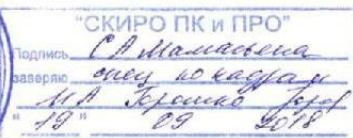 "СКИРО ПК и ПРО"
Подпись СА Мамаевена
заверяю спец по кадрам
МА Горошко
"19" 09 2018